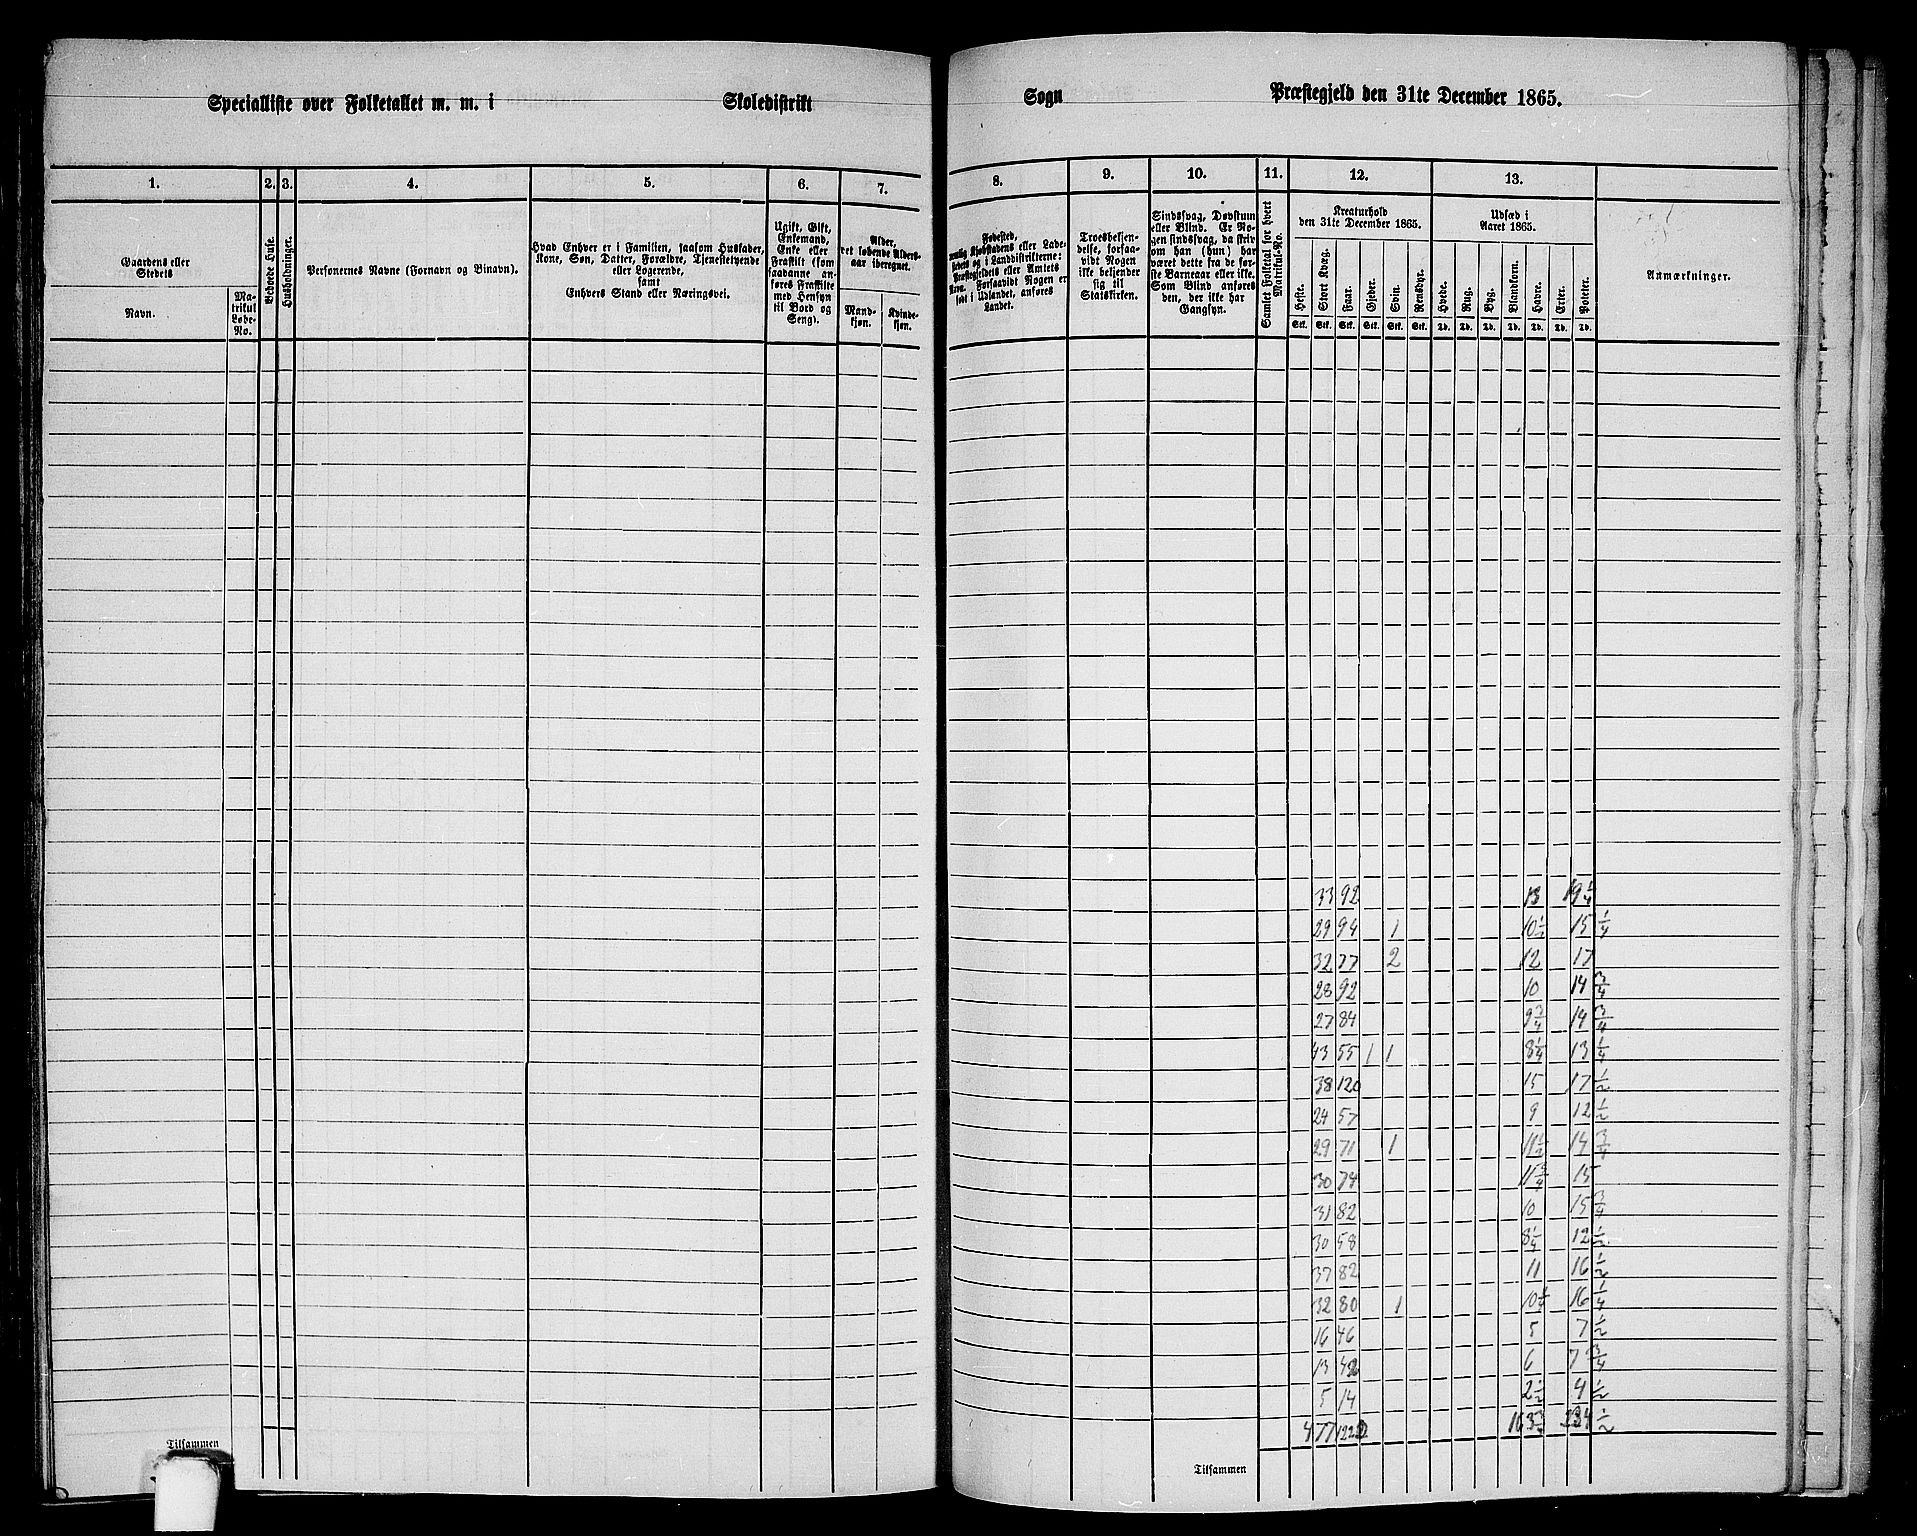 Specialliste over Folketallet m. m. i Skoledistrikt Sogn Præstegjeld den 31te December 1865.
1. 2. 3. 4. 5. 6. 7. 8. 9. 10. 11. 12. 13.
Gaardens eller Stedets
Navn.
Matrikul Løbe-No.
Beboede Huse.
Husholdninger.
Personernes Navne (Fornavn og Binavn).
Hvad Enhver er i Familien, saasom Husfader,
Kone, Søn, Datter, Forældre, Tjenestetyende
eller Logerende,
samt
Enhvers Stand eller Næringsvei.
Ugift, Gift,
Enkemand,
Enke eller
Fraskilt (som
saadanne an-
føres Fraskilte
med Hensyn
til Bord og
Seng).
Alder,
det løbende Alders-
aar iberegnet.
Mand-
kjøn.
Kvinde-
kjøn.
Fødested,
nemlig Kjøbstadens eller Lade-
stedets og i Landdistrikterne:
Præstegjeldets eller Amtets
Navn. Forsaavidt Nogen er
født i Udlandet, anføres
Landet.
Troesbekjen-
delse, forsaa-
vidt Nogen
ikke bekjender
sig til
Statskirken.
Sindssvag, Døvstum
eller Blind. Er No-
gen sindssvag, da skriv
om han (hun) har
været dette fra de før-
ste Barneaar eller ikke.
Som Blind anføres
den, der ikke har
Gangsyn.
Samlet Folketal for hvert
Matrikul-No.
Kreaturhold
den 31te December 1865.
Heste. Stort Kvæg. Faar. Gjeder. Svin. Rensdyr.
Stk. Stk. Stk. Stk. Stk. Stk.
Udsæd i
Aaret 1865.
Hvede. Rug. Byg. Blandkorn. Havre. Erter. Poteter.
Td. Td. Td. Td. Td. Td. Td.
Anmærkninger.
33 92 13 19 1/4
29 94 1 10 1/2 15 1/4
32 77 2 12 17
28 92 10 14 3/4
27 84 9 3/4 14 3/4
43 55 1 1 8 1/4 13 1/4
38 120 15 17 1/2
24 57 9 12 1/2
29 71 1 11 1/2 14 3/4
30 74 11 3/4 15
31 82 10 15 3/4
30 58 8 1/4 12 1/2
37 82 11 16 1/2
32 80 1 10 1/4 16 1/4
16 46 5 7 1/2
13 7 3/4
5 14 2 1/2 4 1/2
477
Tilsammen
Tilsammen